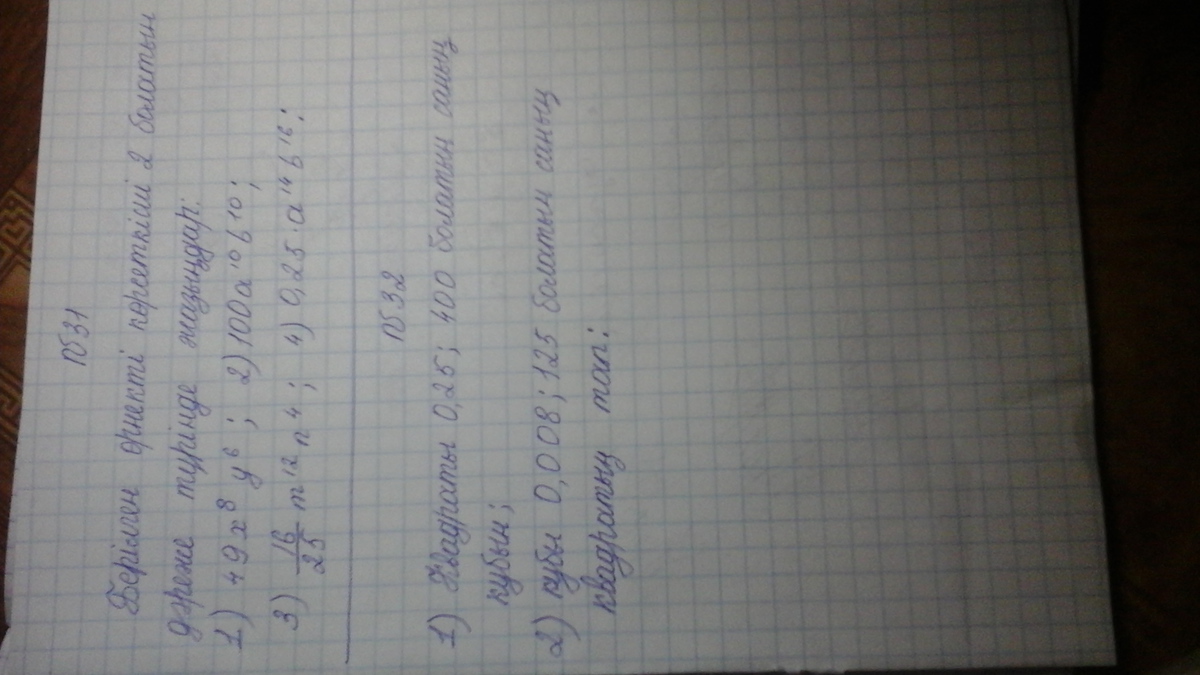 №531
Берілген өрнекті көрсеткіші 2 болатын
дәреже түрінде жазыңдар:
1) 49x⁸y⁶; 2) 100a¹⁰b¹⁰;
3) 16/25 m¹²n⁴; 4) 0,25·a¹⁴b¹⁶:
№532
1) Квадраты 0,25; 400 болатын саның
кубын;
2) кубы 0,008; 125 болатын саның
квадратың тап: